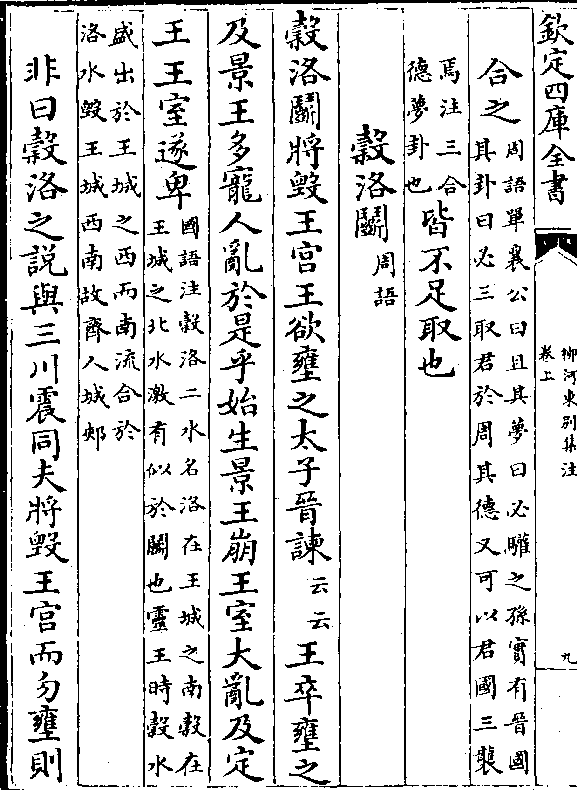 欽定四庫全書
柳河東別集注
卷上
九
合之周語單襄公曰且其夢曰必驩之孫實有晉國
其卦曰必三取君於周其德又可以君國三襲
焉注三合
德夢卦也皆不足取也
穀洛鬭周語
穀洛鬭將毀王宮王欲壅之太子晉諫云云王卒壅之
及景王多寵人亂於是乎始生景王崩王室大亂及定
王王室遂卑國語注穀洛二水名洛在王城之南穀在
王城之北水激有似於鬭也靈王時穀水
盛出於王城之西而南流合於
洛水毀王城西南故齊人城郟
非曰穀洛之說與三川震同夫將毀王宮而勿壅則